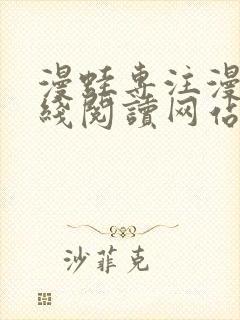 漫蛙专注漫
线阅读网佔
沙菲克